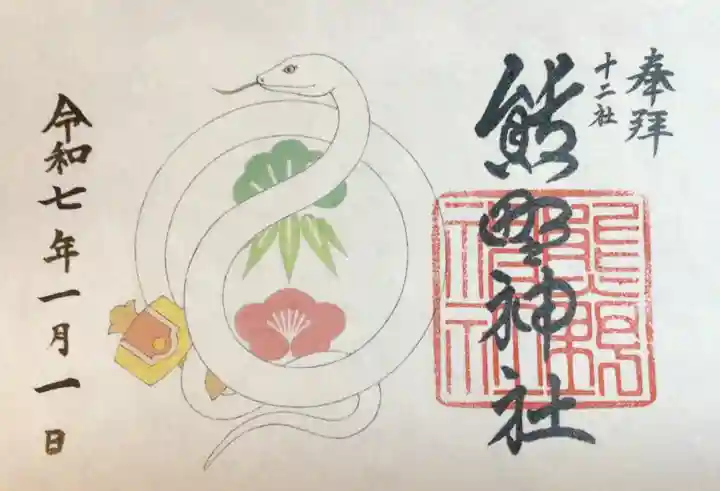 奉拝
十二社
熊野神社
熊野神社
令和七年一月一日